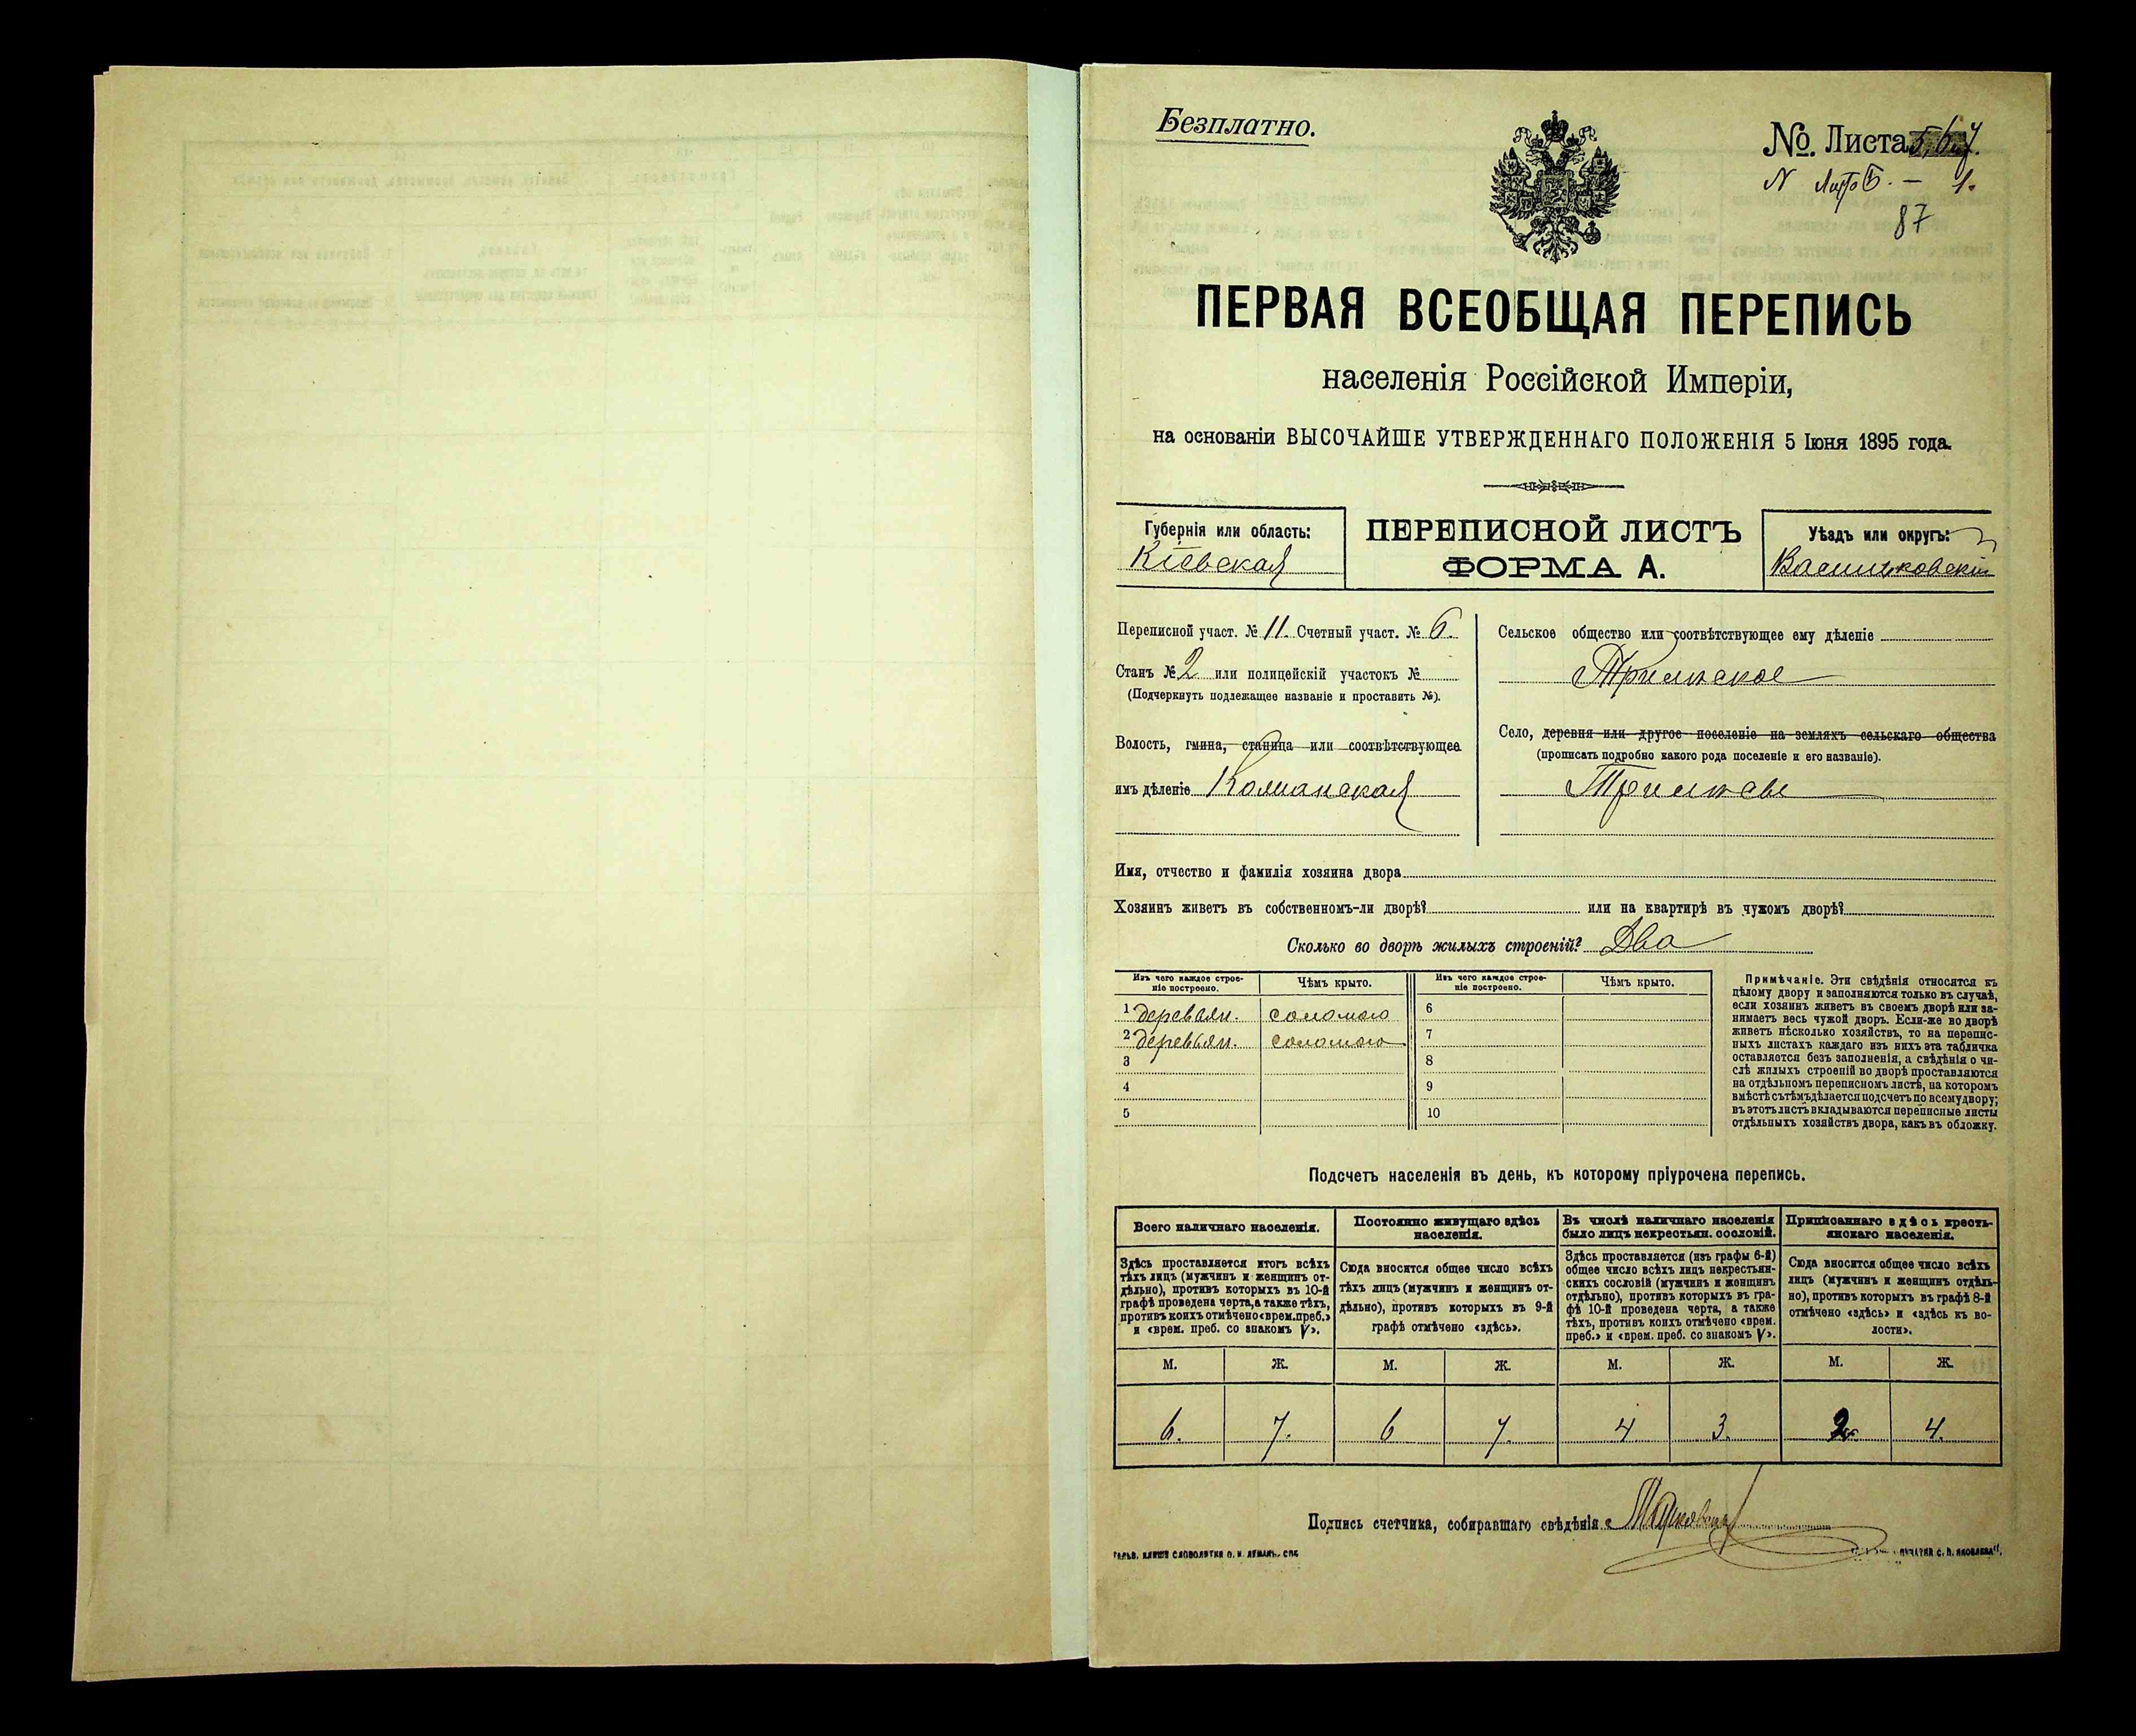 Безплатно.
№. Листа 5, 6 и 7.
N Лит. Б. — 1.
87
ПЕРВАЯ ВСЕОБЩАЯ ПЕРЕПИСЬ
населенія Россійской Имперіи,
на основаніи ВЫСОЧАЙШЕ УТВЕРЖДЕННАГО ПОЛОЖЕНІЯ 5 Іюня 1895 года.
Губернія или область:
Кіевская
ПЕРЕПИСНОЙ ЛИСТЪ
ФОРМА А.
Уѣздъ или округъ:
Васильковскій
Переписной участ. № 11. Счетный участ. № 6.
Станъ № 2 или полицейскій участокъ №
(Подчеркнуть подлежащее названіе и проставить №).
Волость, гмина, станица или соотвѣтствующее
имъ дѣленіе
Сельское общество или соотвѣтствующее ему дѣленіе
Трилѣское
Село, деревня или другое поселеніе на земляхъ сельскаго общества
(прописать подробно какого рода поселеніе и его названіе).
Трилѣсы
Имя, отчество и фамилія хозяина двора
Хозяинъ живетъ въ собственномъ-ли дворѣ? или на квартирѣ въ чужомъ дворѣ?
Сколько во дворѣ жилыхъ строеній? Два
Изъ чего каждое строе-
ніе построено.
Чѣмъ крыто.
Изъ чего каждое строе-
ніе построено.
Чѣмъ крыто.
1 деревян. соломою 6
2 деревян. соломою 7
3 8
4 9
5 10
Примѣчаніе. Эти свѣдѣнія относятся къ
цѣлому двору и заполняются только въ случаѣ,
если хозяинъ живетъ въ своемъ дворѣ или за-
нимаетъ весь чужой дворъ. Если-же во дворѣ
живетъ нѣсколько хозяйствъ, то на перепис-
ныхъ листахъ каждаго изъ нихъ эта табличка
оставляется безъ заполненія, а свѣдѣнія о чи-
слѣ жилыхъ строеній во дворѣ проставляются
на отдѣльномъ переписномъ листѣ, на которомъ
вмѣстѣ съ тѣмъ дѣлается подсчетъ по всему двору;
въ этотъ листъ вкладываются переписные листы
отдѣльныхъ хозяйствъ двора, какъ въ обложку.
Подсчетъ населенія въ день, къ которому пріурочена перепись.
Всего наличнаго населенія.
Здѣсь проставляется итогъ всѣхъ
тѣхъ лицъ (мужчинъ и женщинъ от-
дѣльно), противъ которыхъ въ 10-й
графѣ проведена черта, а также тѣхъ,
противъ коихъ отмѣчено «врем. преб.»
и «врем. преб. со знакомъ V».
Постоянно живущаго здѣсь
населенія.
Сюда вносится общее число всѣхъ
тѣхъ лицъ (мужчинъ и женщинъ от-
дѣльно), противъ которыхъ въ 9-й
графѣ отмѣчено «здѣсь».
Въ числѣ наличнаго населенія
было лицъ некрестьян. сословій.
Здѣсь проставляется (изъ графы 6-й)
общее число всѣхъ лицъ некрестьян-
скихъ сословій (мужчинъ и женщинъ
отдѣльно), противъ которыхъ въ гра-
фѣ 10-й проведена черта, а также
тѣхъ, противъ коихъ отмѣчено «врем.
преб.» и «врем. преб. со знакомъ V».
Приписаннаго здѣсь кресть-
янскаго населенія.
Сюда вносится общее число всѣхъ
лицъ (мужчинъ и женщинъ отдѣль-
но), противъ которыхъ въ графѣ 8-й
отмѣчено «здѣсь» и «здѣсь къ во-
лости».
М. Ж. М. Ж. М. Ж. М. Ж.
6. 7. 6 7. 4 3. 2 4.
Подпись счетчика, собиравшаго свѣдѣнія
ГАЛЬВ. КЛИШЕ СЛОВОЛИТНИ О. И. ЛЕМАНЪ. СПБ
ПЕЧАТНЯ С. П. ЯКОВЛЕВА".